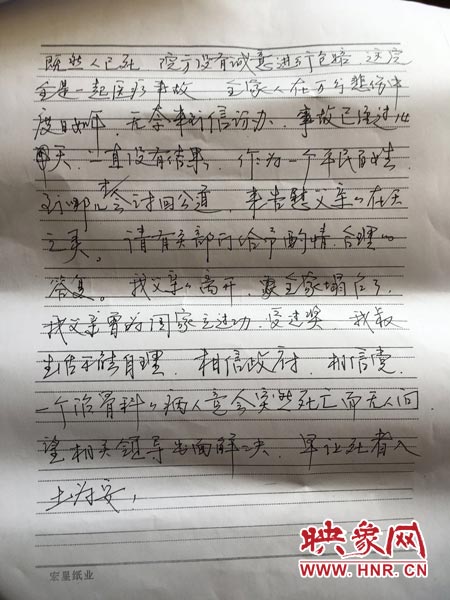 既然人已死 院方没有诚意进行包赔 这完
全是一起医疗事故 全家人在万分悲伤中
度日如年，无奈来到信访办，事故已经过
天，一直没有结果，作为一个平民百姓
到哪儿才会讨回公道，来告慰父亲的在天
之灵。请有关部门给予酌情、合理的
答复。我父亲的离开，全家塌了，
我父亲曾为国家立过功，受过奖，我叔
生活不能自理，相信政府，相信党。
一个治骨科的病人竟会突然死亡而无人问
望相关领导出面解决 早让死者入
土为安！
宏星纸业
映象网
WWW.HNR.CN